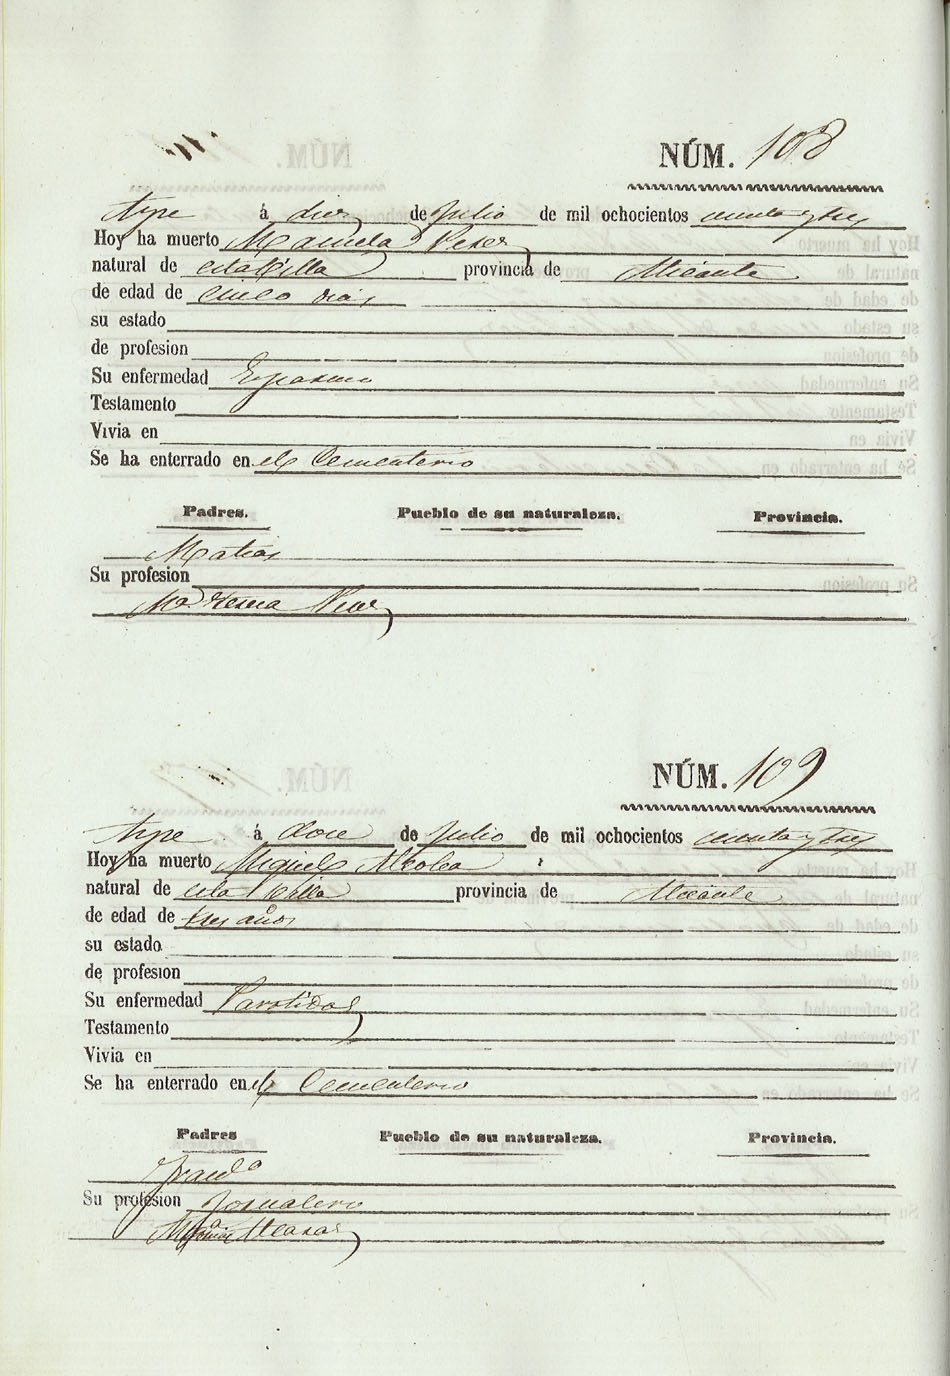 NÚM. 108
Aspe á diez de Julio de mil ochocientos cuenta y tres
Hoy ha muerto Manuela Perez
natural de esta Villa provincia de Alicante
de edad de cinco dias
su estado
de profesion
Su enfermedad Espasmo
Testamento
Vivia en
Se ha enterrado en el Cementerio
Padres. Pueblo de su naturaleza. Provincia.
Matias
Su profesion
Mª Teresa
NÚM. 109
Aspe á doce de Julio de mil ochocientos cuenta y tres
Hoy ha muerto Miguel Alcolea
natural de esta Villa provincia de Alicante
de edad de tres años
su estado
de profesion
Su enfermedad Parotidas
Testamento
Vivia en
Se ha enterrado en el Cementerio
Padres Pueblo de su naturaleza. Provincia.
Franco
Su profesion Jornalero